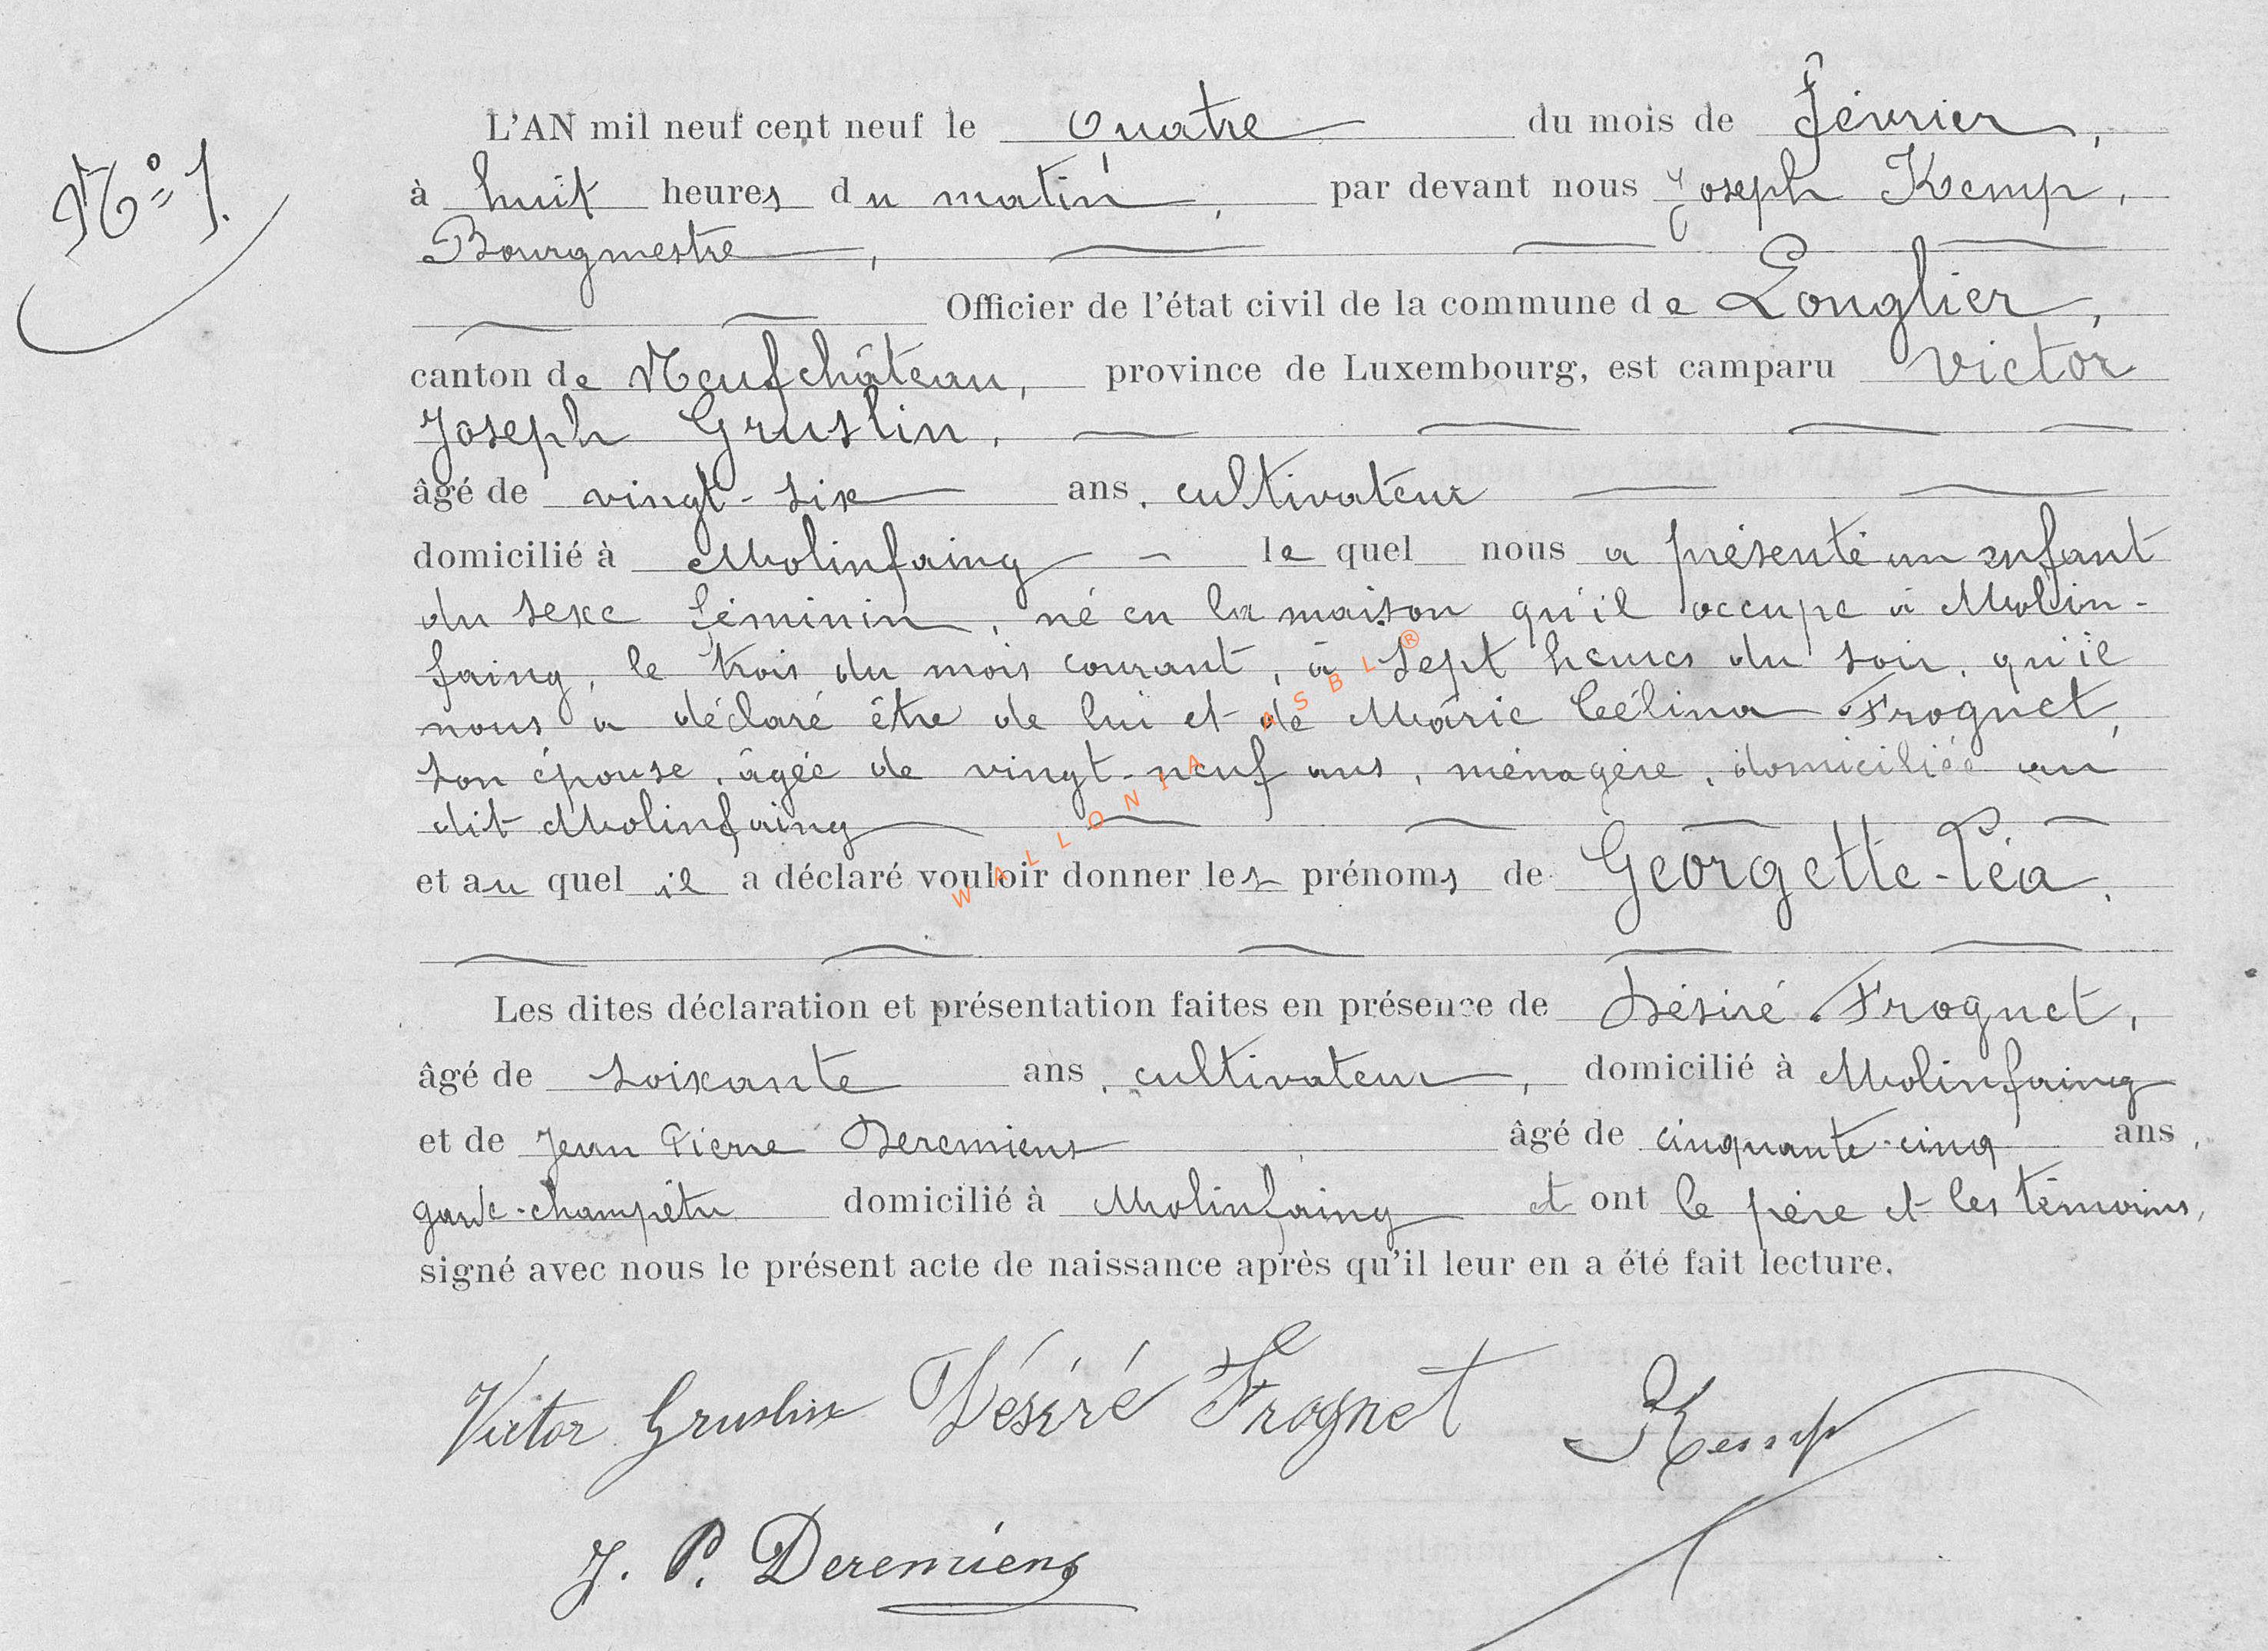 L'AN mil neuf cent neuf le Quatre du mois de février,
N° 1.
à huit heures du matin, par devant nous Joseph Kemp,
Bourgmestre,
Officier de l'état civil de la commune de Longlier,
canton de Neufchâteau, province de Luxembourg, est camparu Victor
Joseph Gruslin,
âgé de vingt-six ans, cultivateur
domicilié à Molinfaing le quel nous a présenté un enfant
du sexe féminin, né en la maison qu'il occupe à Molin-
faing, le trois du mois courant, à sept heures du soir, qu'il
nous a déclaré être de lui et de Marie Célina Frognet,
son épouse, âgée de vingt-neuf ans, ménagère, domiciliée au
dit Molinfaing
et au quel il a déclaré vouloir donner les prénoms de Georgette-Léa.
Les dites déclaration et présentation faites en présence de Désiré Frognet,
âgé de soixante ans, cultivateur, domicilié à Molinfaing
et de Jean Pierre Deremiens âgé de cinquante-cinq ans,
garde-champêtre domicilié à Molinfaing et ont le père et les témoins,
signé avec nous le présent acte de naissance après qu'il leur en a été fait lecture.
Victor Gruslin Désiré Frognet Kemp
J. P. Deremiens
WALLONIA ASBL ®